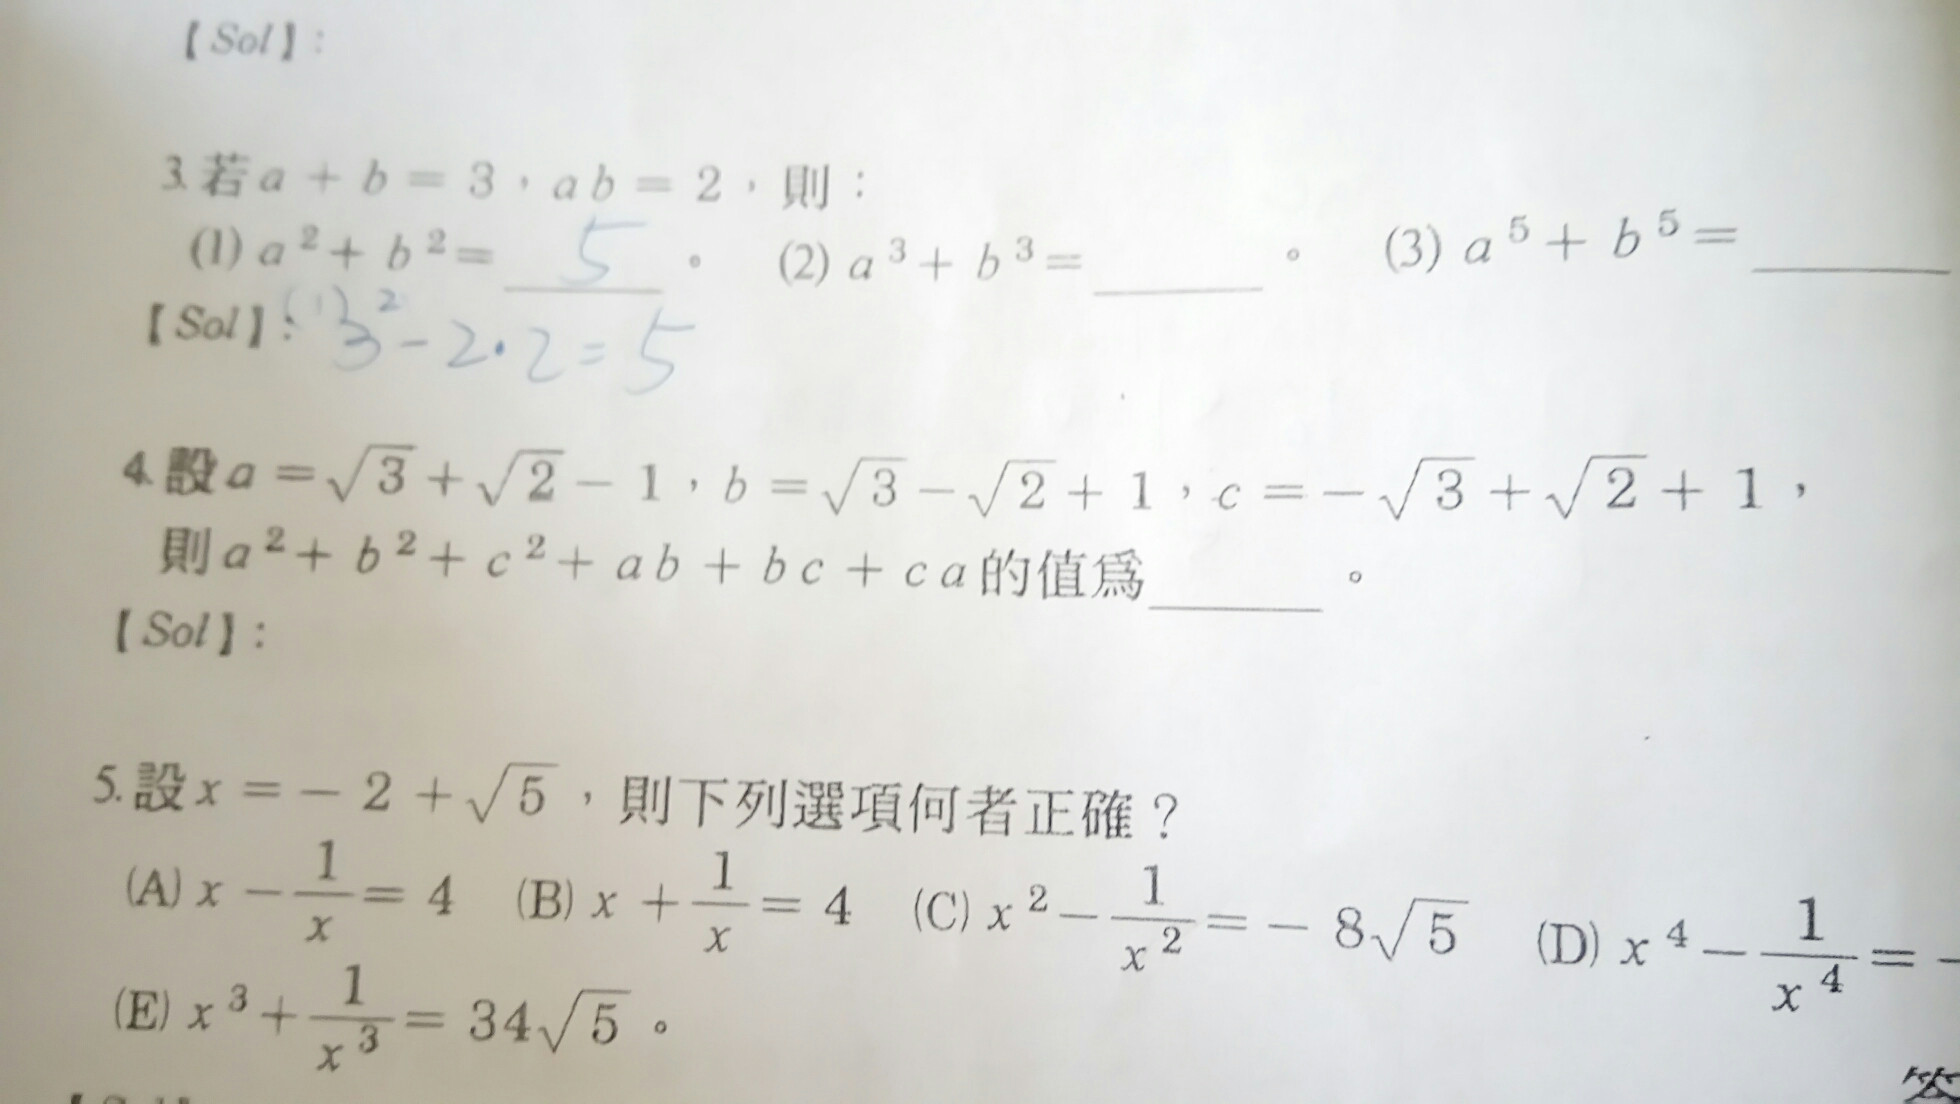 【Sol】:
3.若a + b = 3,ab = 2,則:
(1) a² + b² = 5。 (2) a³ + b³ = ______。 (3) a⁵ + b⁵ = ______
【Sol】: (1) 3² - 2·2 = 5
4.設a = √3 + √2 - 1,b = √3 - √2 + 1,c = -√3 + √2 + 1,
則a² + b² + c² + ab + bc + ca的值爲______。
【Sol】:
5.設x = -2 + √5,則下列選項何者正確?
(A) x - 1/x = 4 (B) x + 1/x = 4 (C) x² - 1/x² = -8√5 (D) x⁴ - 1/x⁴ = -
(E) x³ + 1/x³ = 34√5。
答